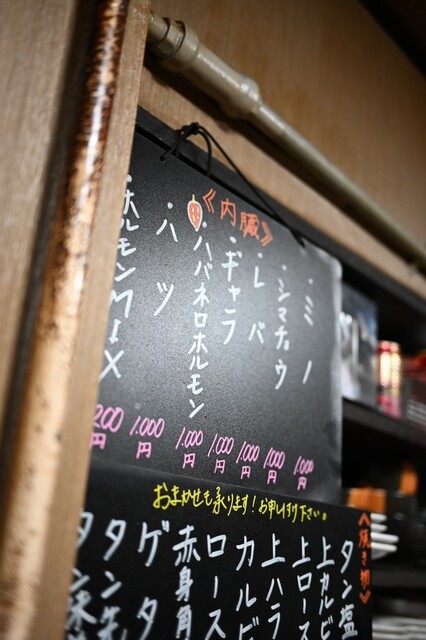 《内臓》
・ミノ
1.000円
・シマチョウ
1.000円
・レバ
1.000円
・ギャラ
1.000円
・ハバネロホルモン
1.000円
・ハツ
1.000円
ホルモンMIX
200円
おまかせも承ります!お申し付け下さい。
タン塩
上カルビ
上ロース
上ハラ
カルビ
ロース
赤身角
ゲタ
タン先
タン